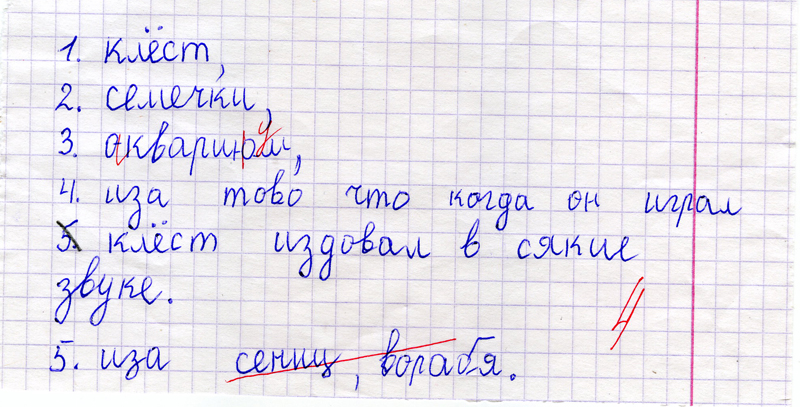 1. клёст,
2. семечки,
3. оквариюм,
4. иза тово что когда он играл
5. клёст издовал в сякие
звуке.
4
5. иза сениц, ворабя.